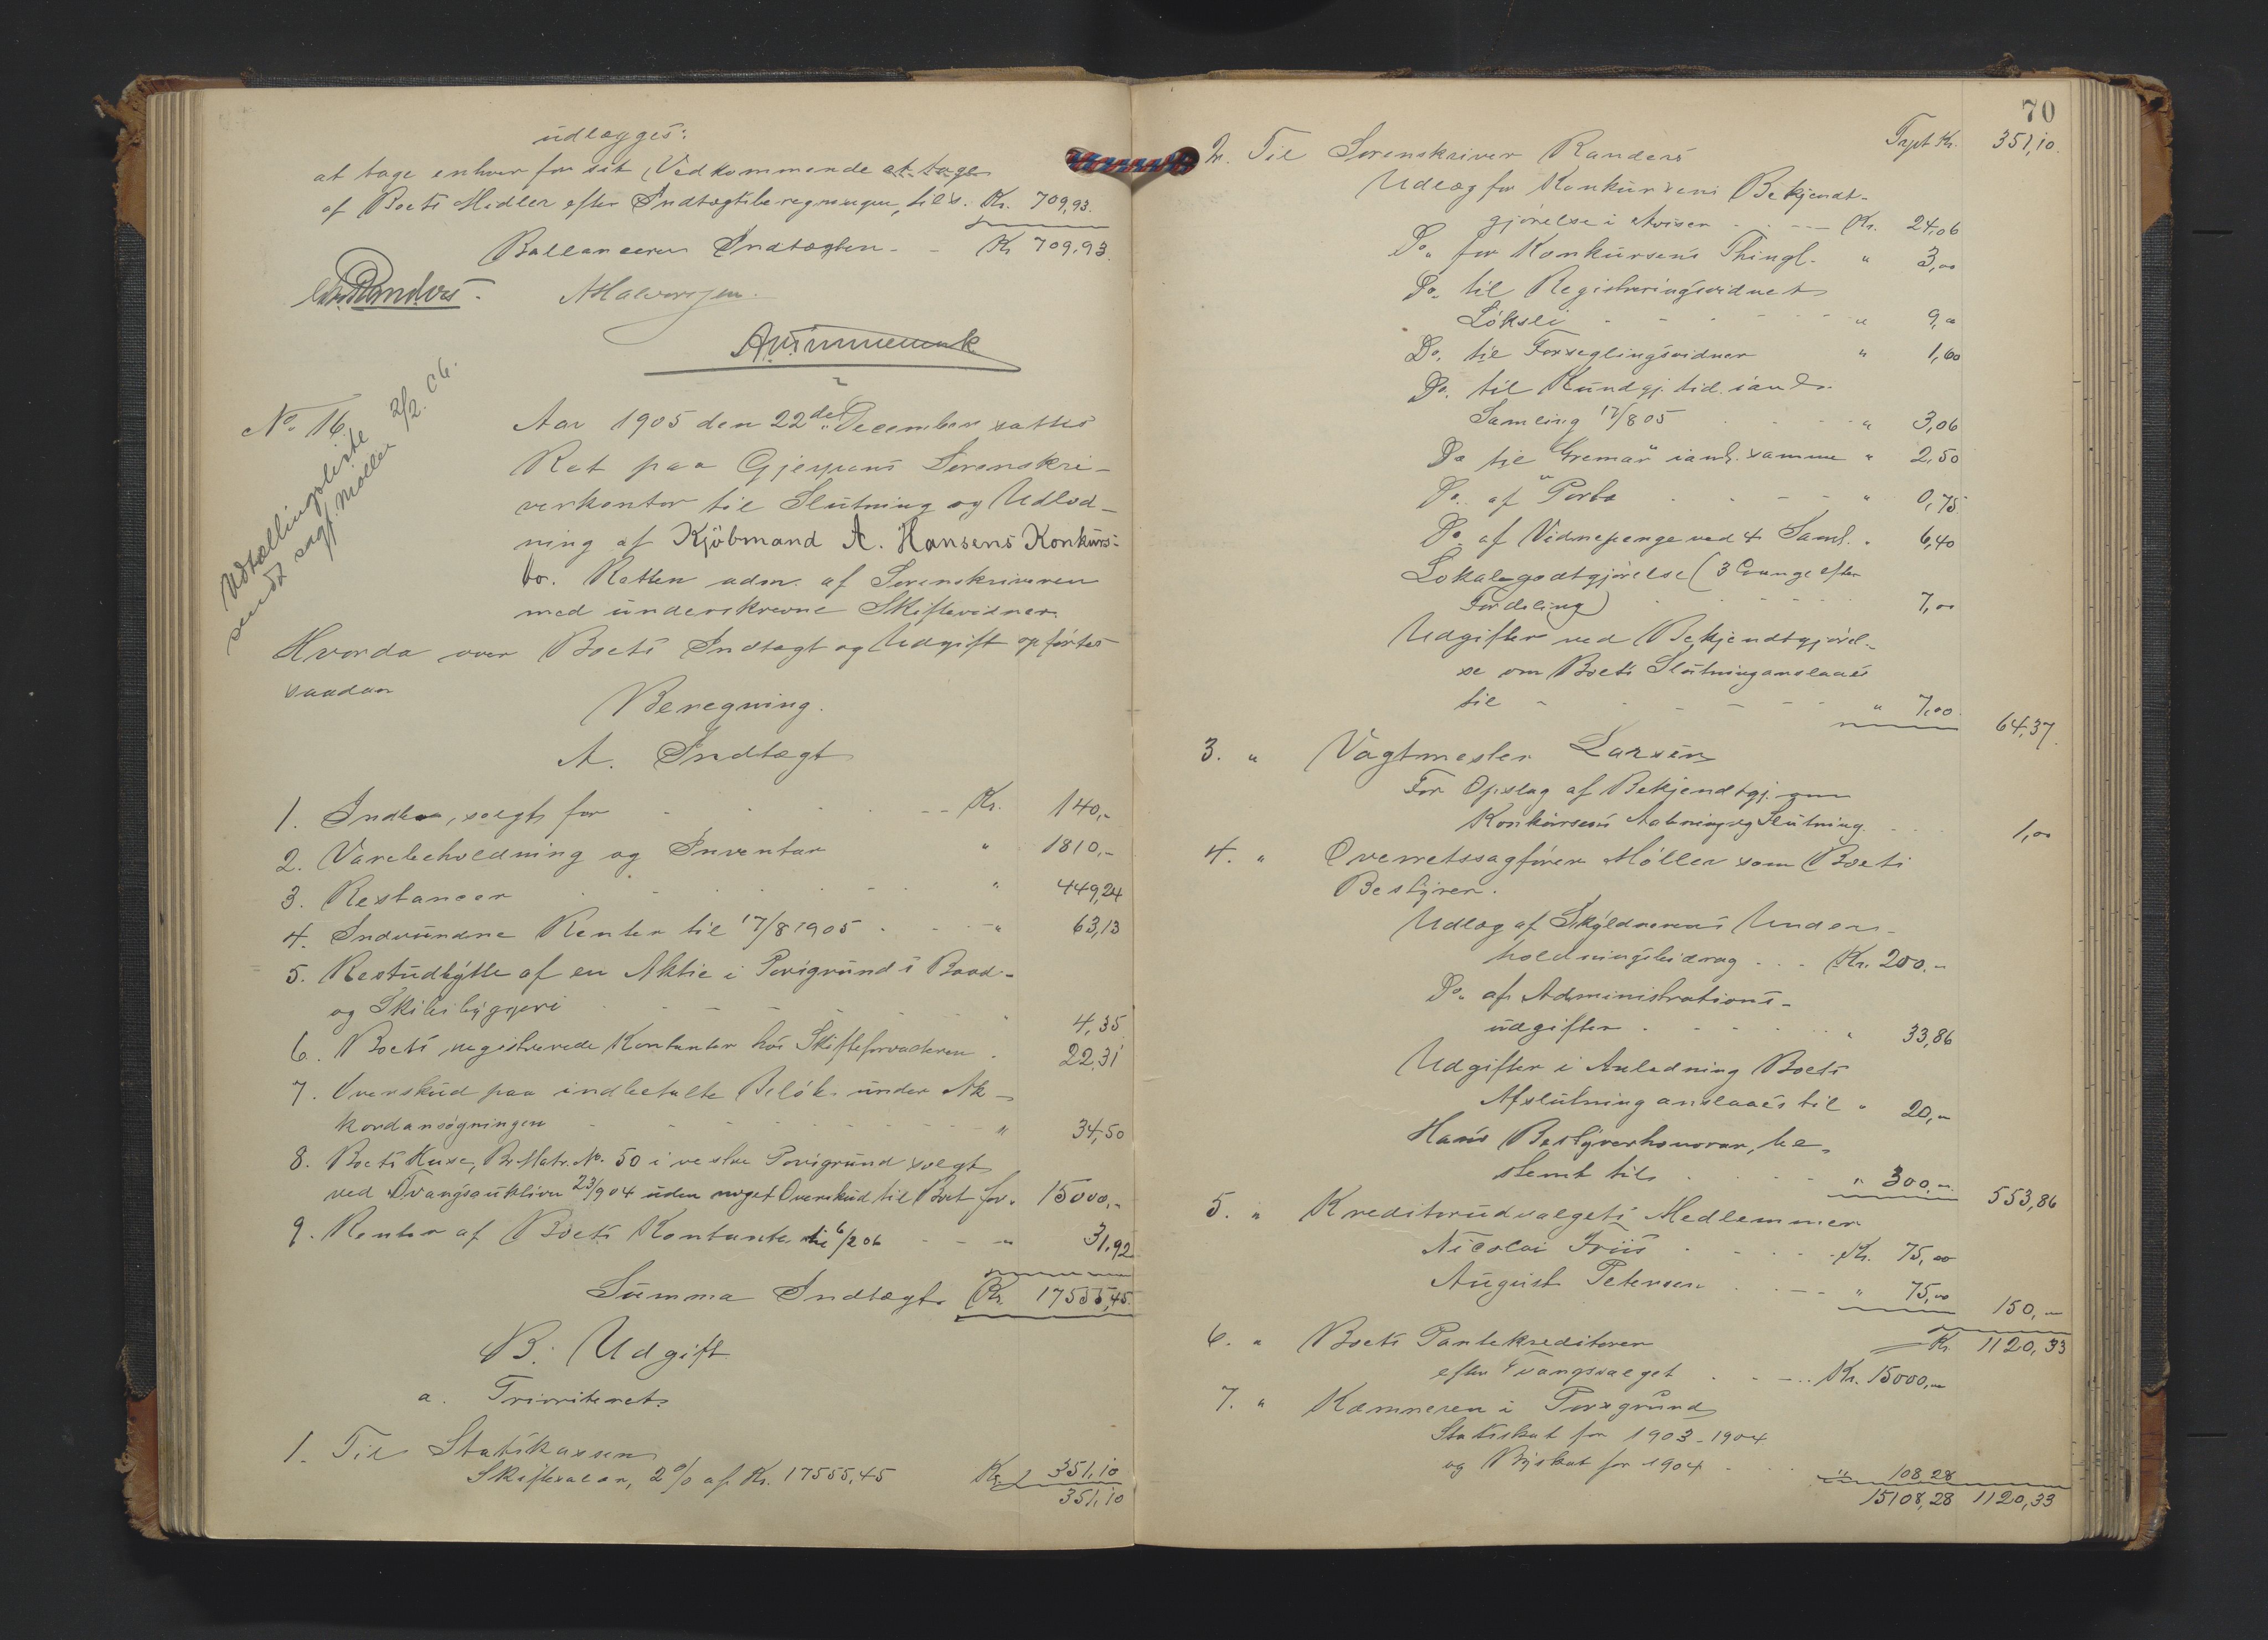 udlægges:
at tage enhver for sit Vedkommende at tage
af Boets Midler efter Indtægtsberegningen, tils. Kr. 709,93.
Ballancerer Indtægten - - Kr 709,93.
Randers. AHalvorsen.
No. 16.
Udtællingsliste 2/2. 06.
sendt sagf. Møller
Aar 1905 den 22de December sattes
Ret paa Gjerpens Sorenskri-
verkontor til Slutning og Udlod-
ning af Kjøbmand A. Hansens Konkurs-
bo. Retten adm. af Sorenskriveren
med underskrevne Skiftevidner.
Hvorda over Boets Indtægt og Udgift opførtes
saadan
Beregning.
A. Indtægt
1. Indbo, solgt for - - - Kr. 140,-
2. Varebeholdning og Inventar " 1810,-
3. Restancer " 449,24
4. Indvundne Renter til 17/8 1905 - - " 63,13
5. Restudbytte af en Aktie i Porsgrund's Baad-
og Skibsbyggeri 4,35
6. Boets registrerede Kontanter hos Skifteforvalteren . 22,31
7. Overskud paa indbetalte Beløb under Ak-
kordansøgningen - - - " 34,50
8. Boets Huse, Br. Matr. No. 50 i vestre Porsgrund solgt
ved Tvangsauktion 23/9 04 uden noget Overskud til Boet for. 15000,-
9. Renter af Boets Kontanter til 6/2 06 - - " 31,92
Summa Indtægt Kr. 17555,45.
B. Udgift
a. Prioriteret.
1. Til Statskassen
Skiftesalær, 2 % af Kr. 17555,45 Kr. 351,10
351,10
70
Trpt Kr. 351,10.
2. Til Sorenskriver Randers
Udlæg for Konkursens Bekjendt-
gjørelse i Aviser - - - Kr. 24,06
Do. for Konkursens Thingl. " 3,00
Do. til Registreringsvidnet
Løksli - - - " 9,00
Do. til Forseglingsvidner " 1,60
Do. til Kundgj. tid. i anl.
Samling 17/8 05 " 3,06
Do til "Gremar" i anl. samme " 2,50
Do. af Porto - - " 0,75
Do. af Vidnepenge ved 4 Saml. " 6,40
Lokalegodtgjørelse (3 Gange efter
Fordeling) 7,00
Udgifter ved Bekjendtgjørel-
se om Boets Slutning anslaaes
til - - - " 7,00. 64,37.
3. " Vagtmester Larsen
For Opslag af Bekjendtgj. om
Konkursens Aabning og Slutning. 1,00
4. " Overretssagfører Møller som Boets
Bestyrer.
Udlæg af Skyldnerens Under-
holdningsbidrag - - - Kr. 200,-
Do. af Administrations-
udgifter - - - " 33,86
Udgifter i Anledning Boets
Afslutning anslaaes til " 20,-
Hans Bestyrerhonorar, be-
stemt til - - - " 300,-. 553,86
5. " Kreditorudvalgets Medlemmer
Nicolai Friis - - - Kr. 75,00
August Petersen - - - " 75,00 150,-
Kr. 1120,33
6. " Boets Pantekreditorer
efter Tvangssalget - - - Kr. 15000,-
7. " Kæmneren i Porsgrund
Statsskat for 1903-1904
og Byskat for 1904 - - " 108,28
15108,28 1120,33